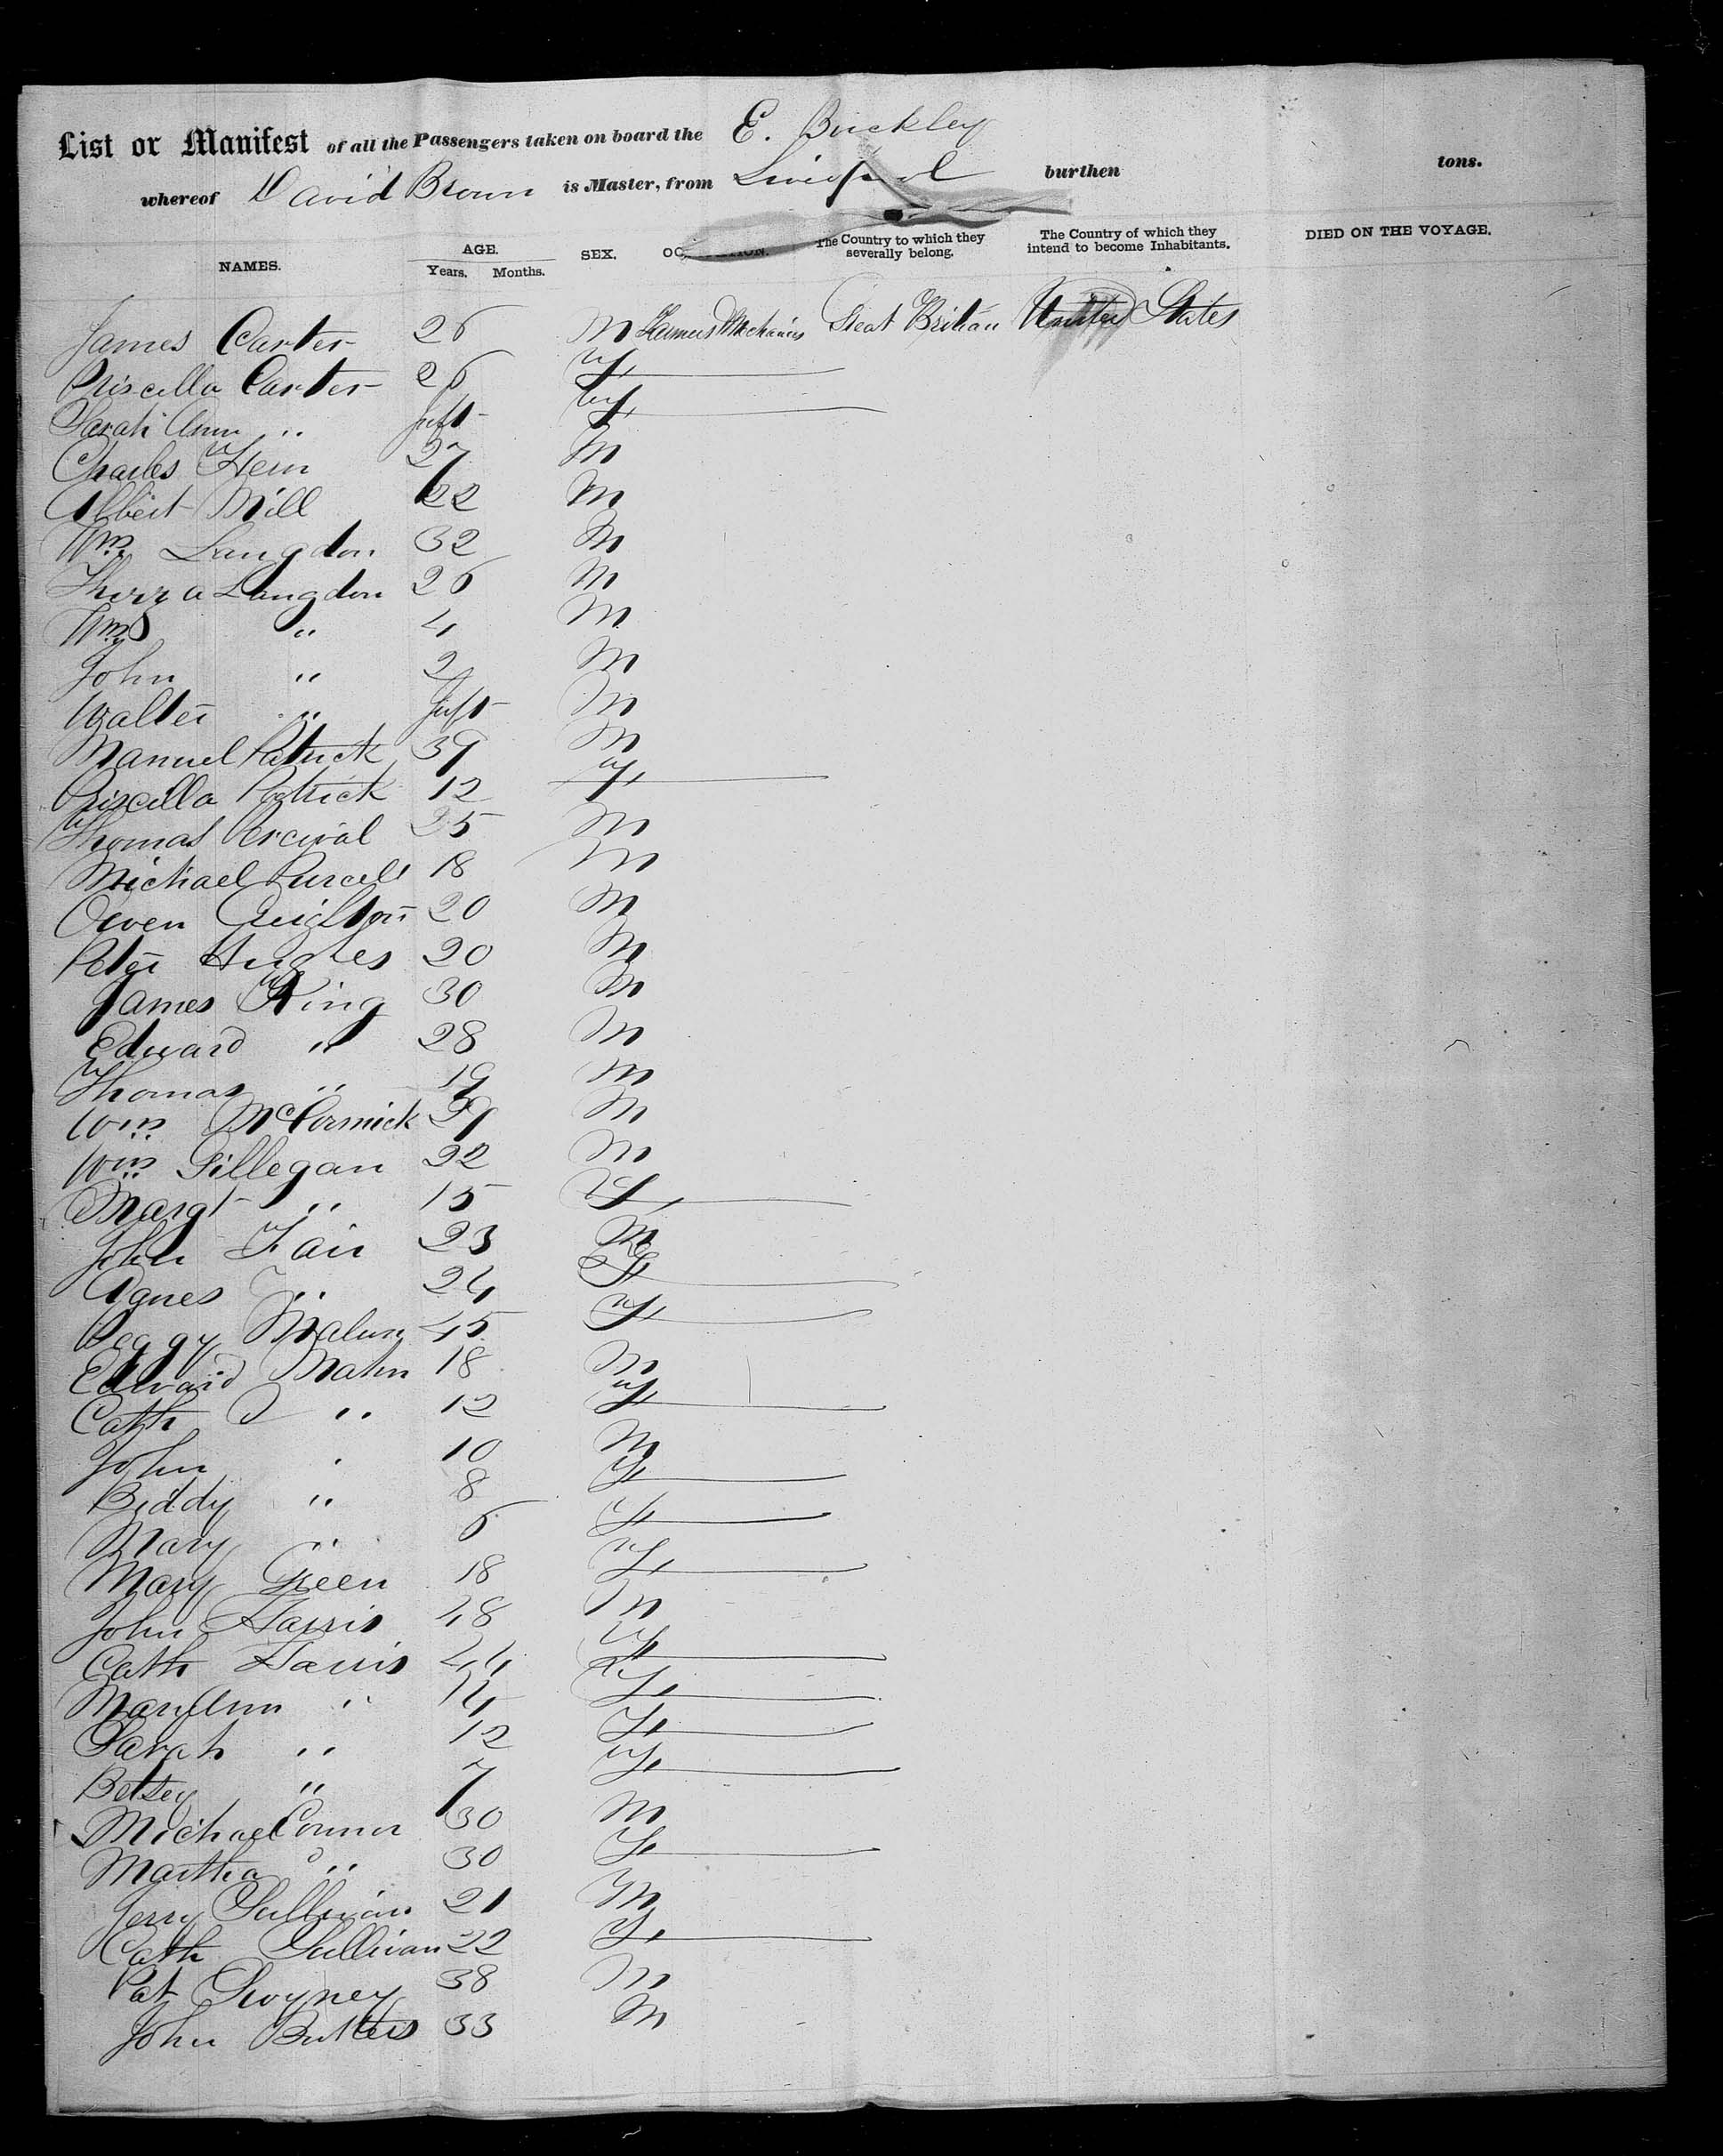 List or Manifest of all the Passengers taken on board the E. Buckley
whereof David Brown is Master, from Liverpool burthen tons.
NAMES. AGE. Years. Months. SEX. OCCUPATION. The Country to which they severally belong. The Country of which they intend to become Inhabitants. DIED ON THE VOYAGE.
James Carter 26 M Farmers Mechanics Great Britian United States
Priscilla Carter 26 F
Sarah Ann " Inft F
Charles Hern 27 M
Albert Mill 22 M
Wm Langdon 32 M
Thirza Langdon 26 M
Wm " 4 M
John " 2 M
Walter " Inft M
Manuel Patrick 39 M
Priscilla Patrick 12 F
Thomas Percival 25 M
Michael Purcell 18 M
Owen 20 M
Peter Hughes 20 M
James King 30 M
Edward " 28 M
Thomas " 19 M
Wm McCormick 29 M
Wm Gillegan 22 M
Margt " 15 F
John Fair 23 M
Agnes " 24 F
Peggy 45 F
Edward Mahn 18 M
Cath " 12 F
John " 10 M
Biddy " 8 F
Mary " 6 F
Mary Green 18 F
John Harris 48 M
Cath Harris 44 F
Mary Ann " 14 F
Sarah " 12 F
Betsey " 7 F
Michael Connor 30 M
Martha " 30 F
Jerry Sullivan 21 M
Cath Sullivan 22 F
Pat Swyney 38 M
John Butters 33 M